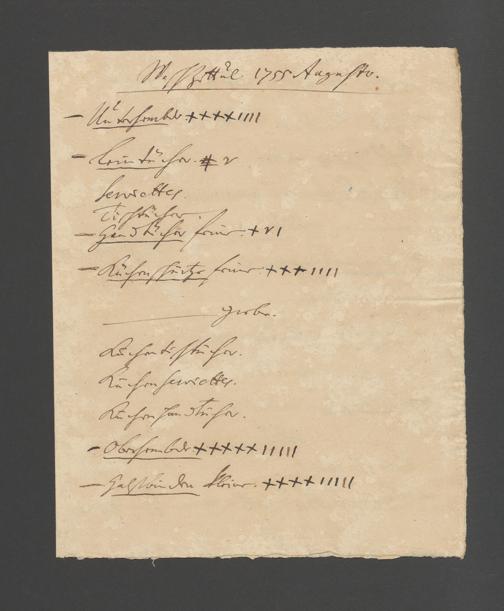 Waschzettul 1755 Augusto.
– Unterhembder ++++ ||||
– Leintücher. # v
Serviettes.
Tischtücher.
– Handtücher feine + v |
– Küchenschürze feine +++ ||||
——— grobe.
Küchentischtücher.
Küchenserviettes.
Küchenhandtücher.
– Oberhembder +++++ |||||
– Halsbinden kleine. ++++ |||||